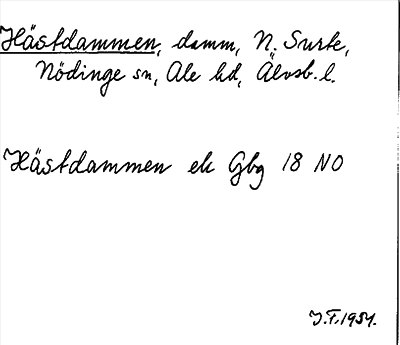 Hästdammen, damm, N. Surte,
Nödinge sn, Ale hd, Älvsb. l.
Hästdammen ek Gbg 18 NO
J.F. 1951.